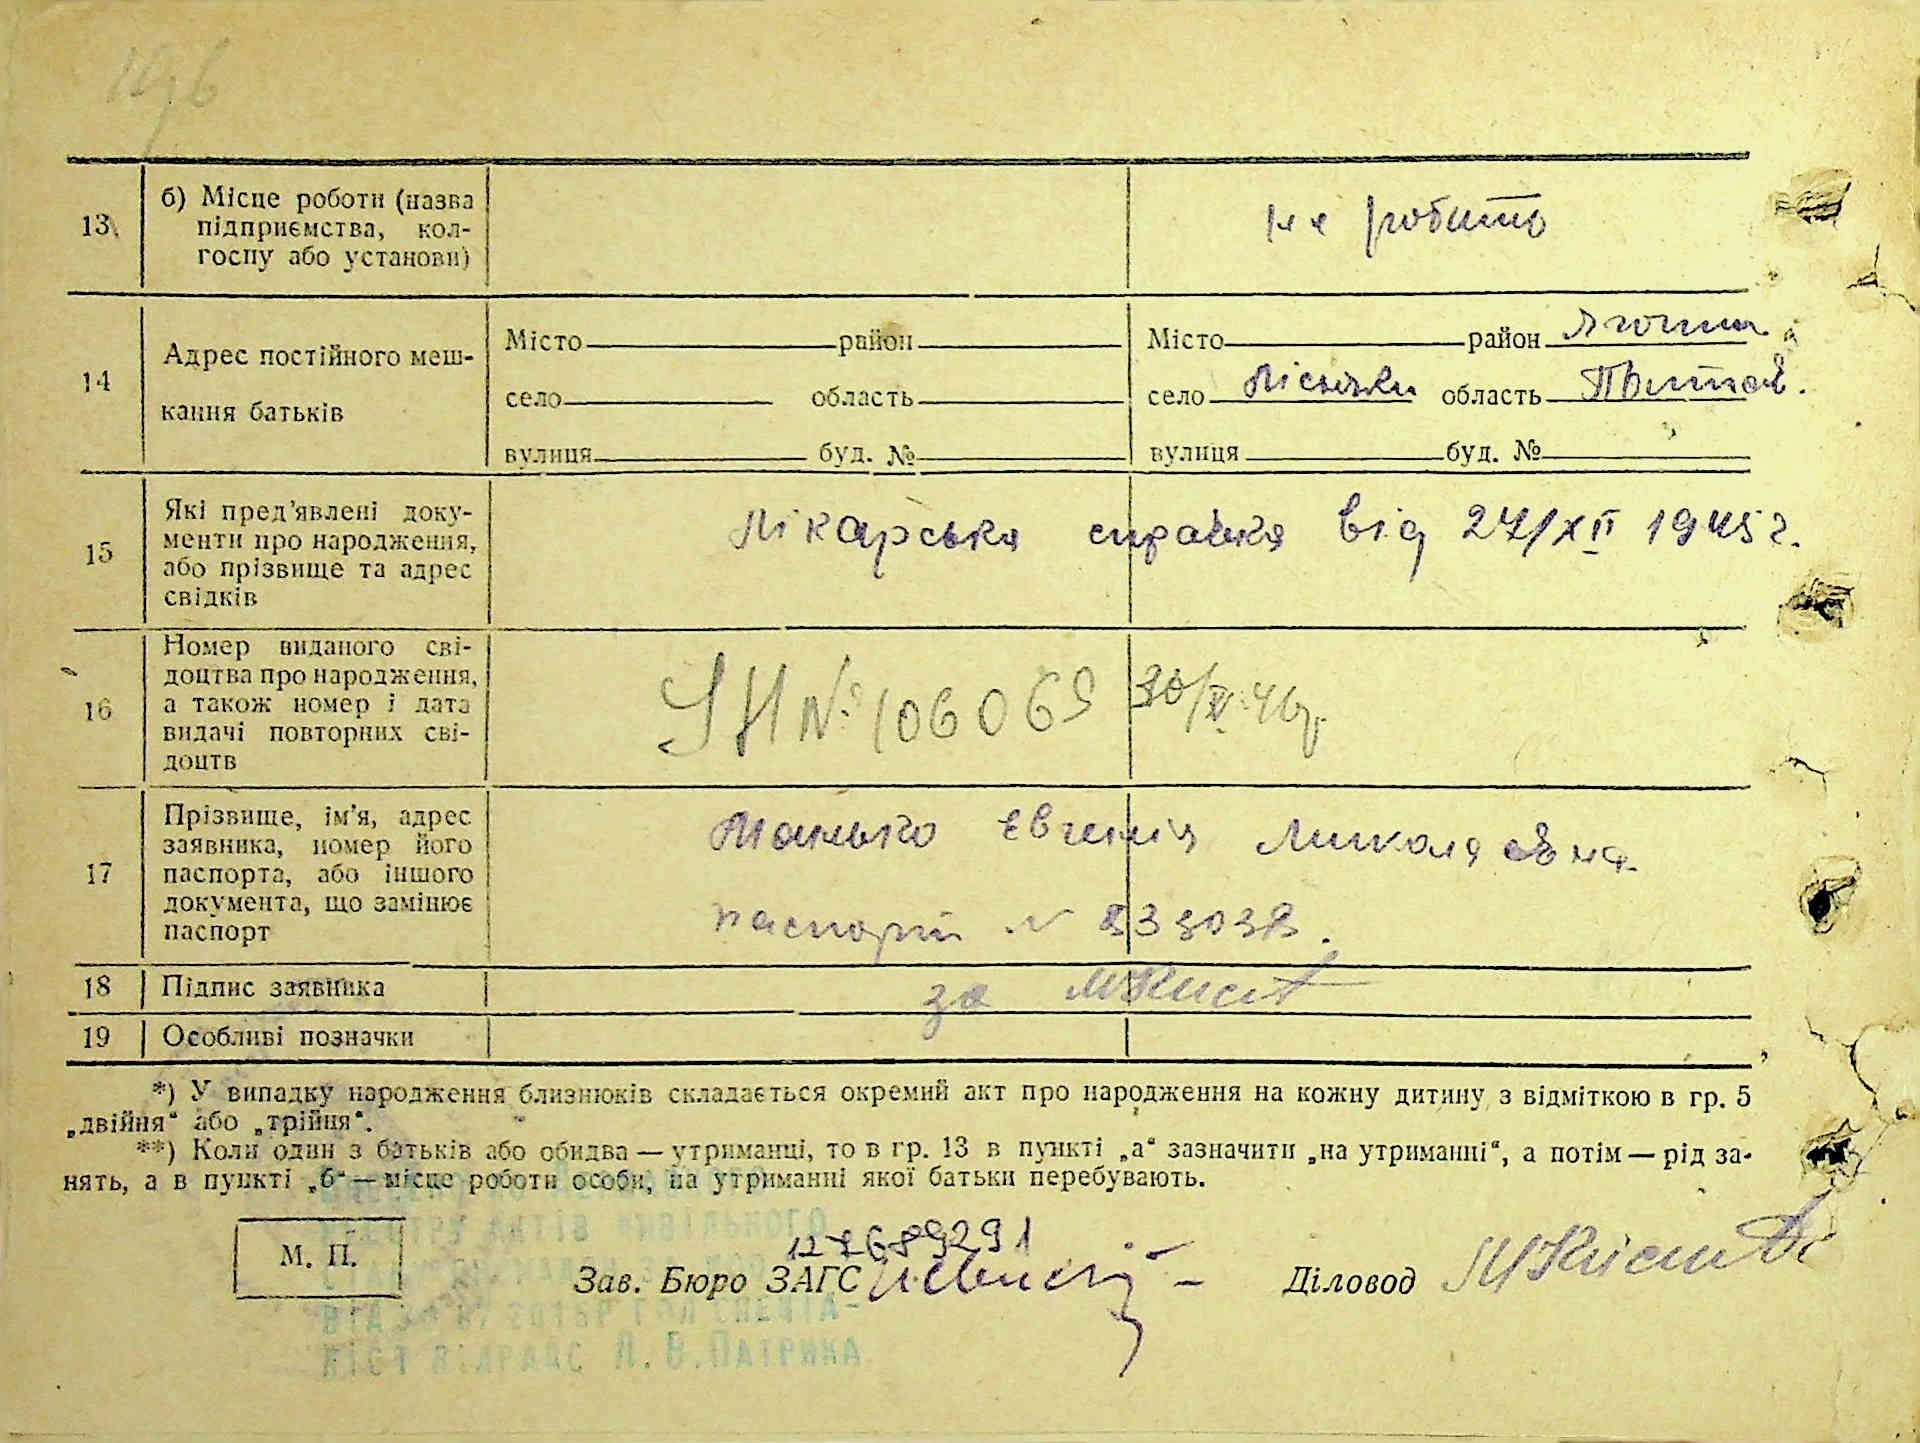 13
б) Місце роботи (назва
підприємства, кол-
госпу або установи)
не робить
14
Адрес постійного меш-
кання батьків
Місто район
село область
вулиця буд. №
Місто район Яготин
село Лісняки область Полтав.
вулиця буд. №
15
Які пред'явлені доку-
менти про народження,
або прізвище та адрес
свідків
Лікарська справка від 27/XII 1945 г.
16
Номер виданого сві-
доцтва про народження,
а також номер і дата
видачі повторних сві-
доцтв
№ 106069
17
Прізвище, ім'я, адрес
заявника, номер його
паспорта, або іншого
документа, що замінює
паспорт
Манько Євгенія Миколаєвна
паспорт №
18
Підпис заявника
за
19
Особливі позначки
*) У випадку народження близнюків складається окремий акт про народження на кожну дитину з відміткою в гр. 5
„двійня“ або „трійня“.
**) Коли один з батьків або обидва — утриманці, то в гр. 13 в пункті „а“ зазначити „на утриманні“, а потім — рід за-
нять, а в пункті „б“ — місце роботи особи, на утриманні якої батьки перебувають.
М. П.
12689291
Зав. Бюро ЗАГС
Діловод